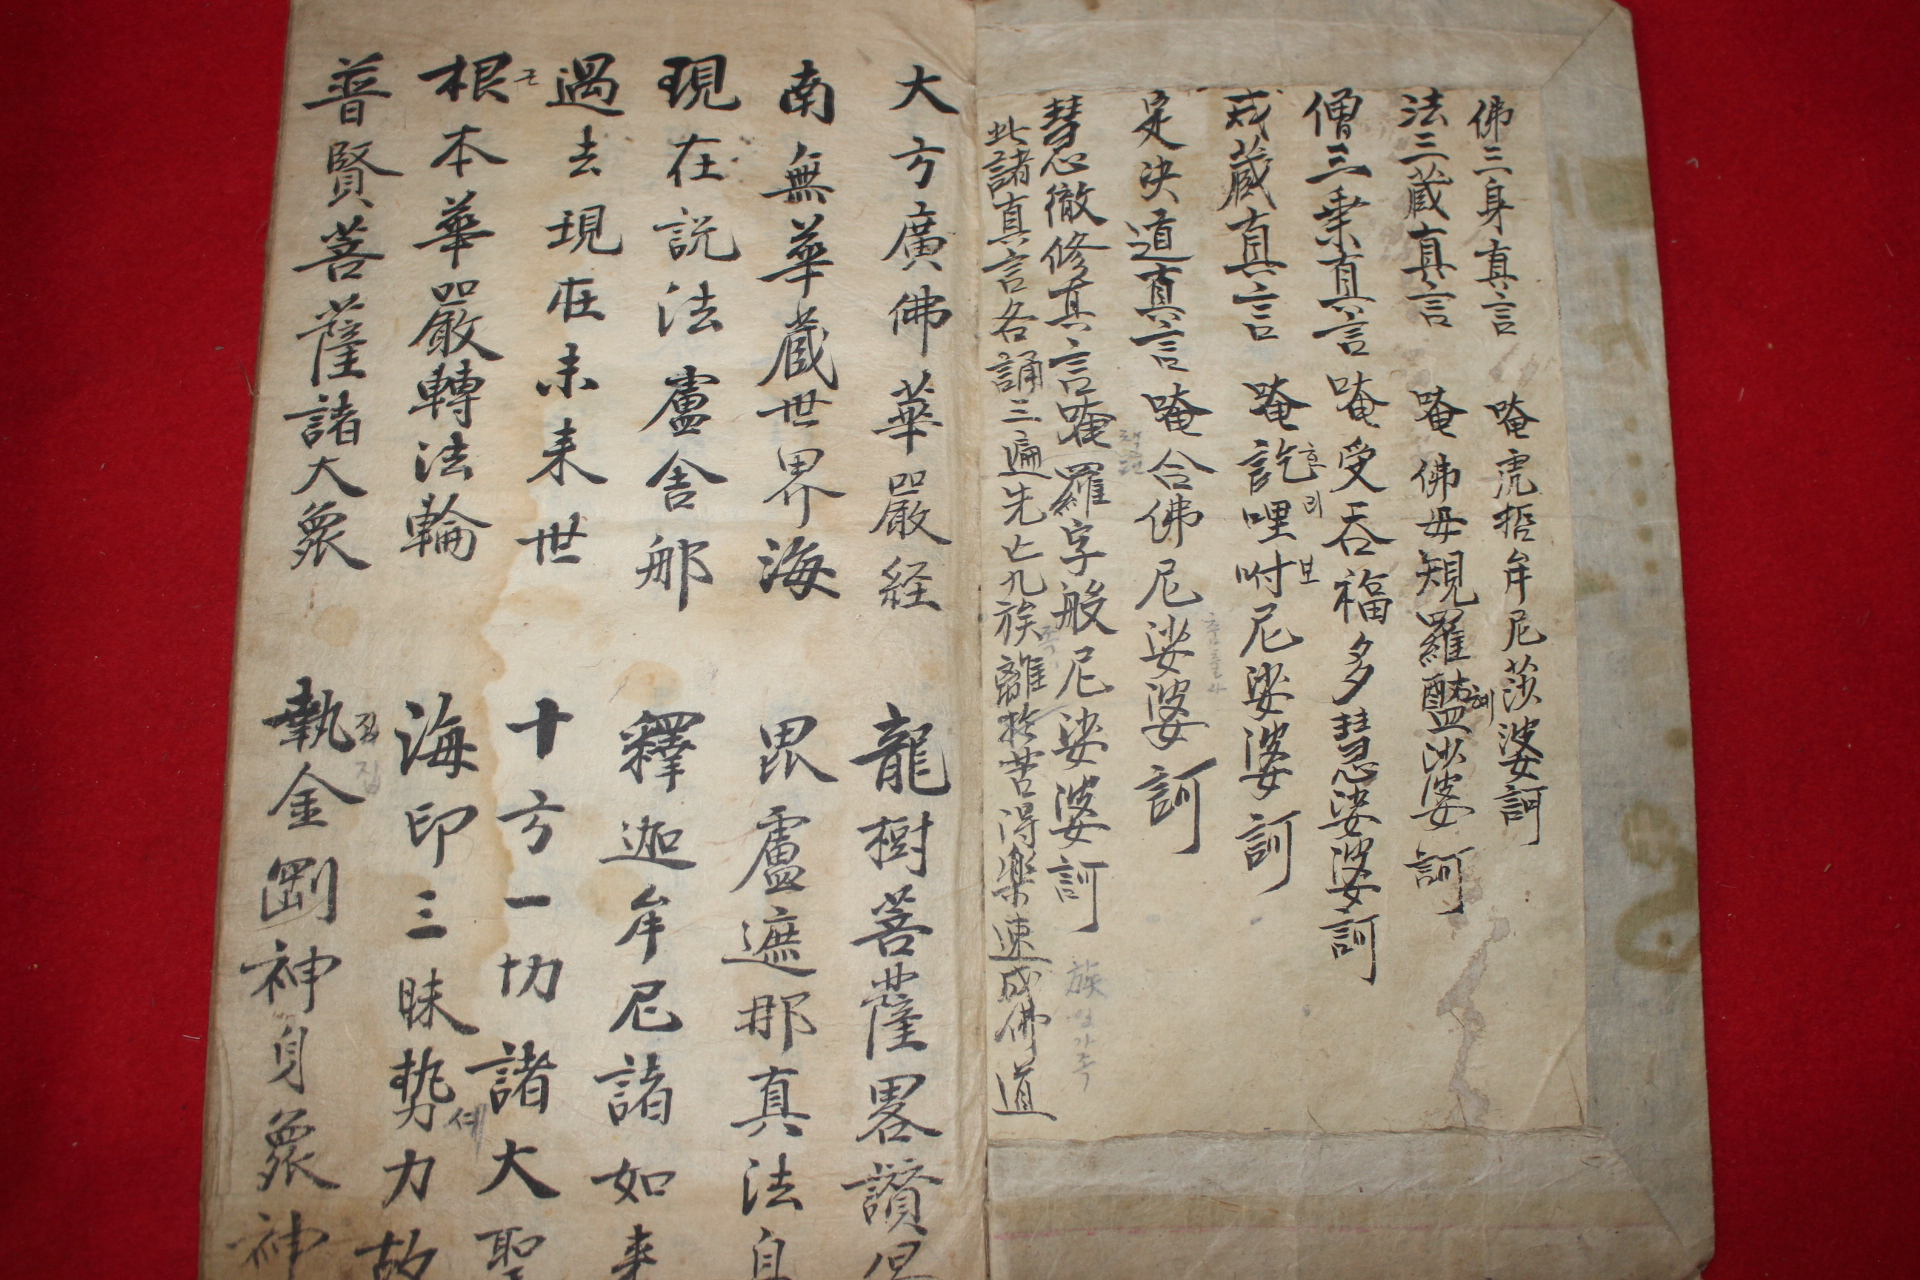 佛三身真言 唵虎哲牟尼莎婆訶
法三蔵真言 唵佛毋規羅醯沙婆訶
혜
僧三乗真言唵受吞福多慧娑婆訶
戒蔵真言 唵訖哩咐尼娑婆訶
흘
리
보
定決道真言唵合佛尼娑婆訶
慧徹修真言唵羅字般尼娑婆訶
此諸真言各誦三遍先亡九族離於苦得樂速成佛道
족
族
大方廣佛華嚴経 龍樹菩薩畧讃偈
南無華蔵世界海 毘盧遮那真法身
現在説法盧舎那 釋迦牟尼諸如来
過去現在未来世 十方一切諸大聖
根本華嚴轉法輪 海印三昧勢力故
근
세
普賢菩薩諸大衆 執金剛神身衆神
집
집